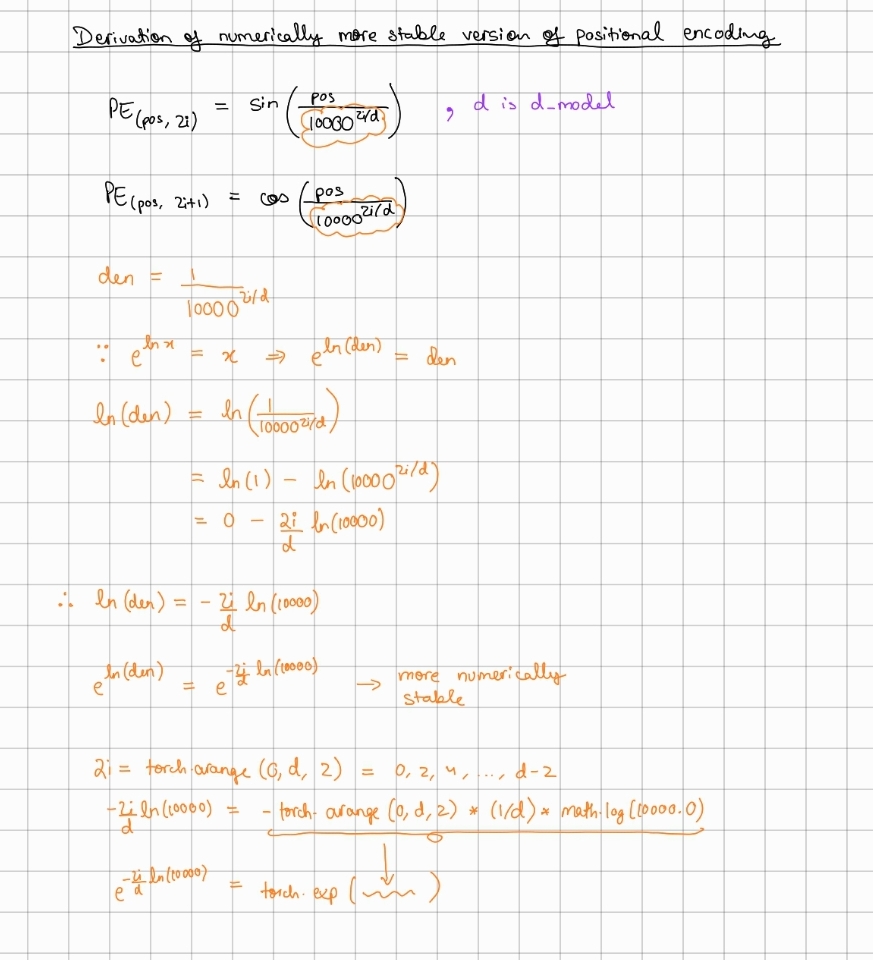 Derivation of numerically more stable version of positional encoding
PE(pos, 2i) = sin(pos / 10000^(2i/d)) , d is d-model
PE(pos, 2i+1) = cos(pos / 10000^(2i/d))
den = 1 / 10000^(2i/d)
∵ e^(ln x) = x ⇒ e^(ln(den)) = den
ln(den) = ln(1 / 10000^(2i/d))
= ln(1) - ln(10000^(2i/d))
= 0 - 2i/d ln(10000)
∴ ln(den) = - 2i/d ln(10000)
e^(ln(den)) = e^(-2i/d ln(10000)) → more numerically
stable
2i = torch.arange(0, d, 2) = 0, 2, 4, ..., d-2
-2i/d ln(10000) = - torch.arange(0, d, 2) * (1/d) * math.log(10000.0)
e^(-2i/d ln(10000)) = torch.exp( )